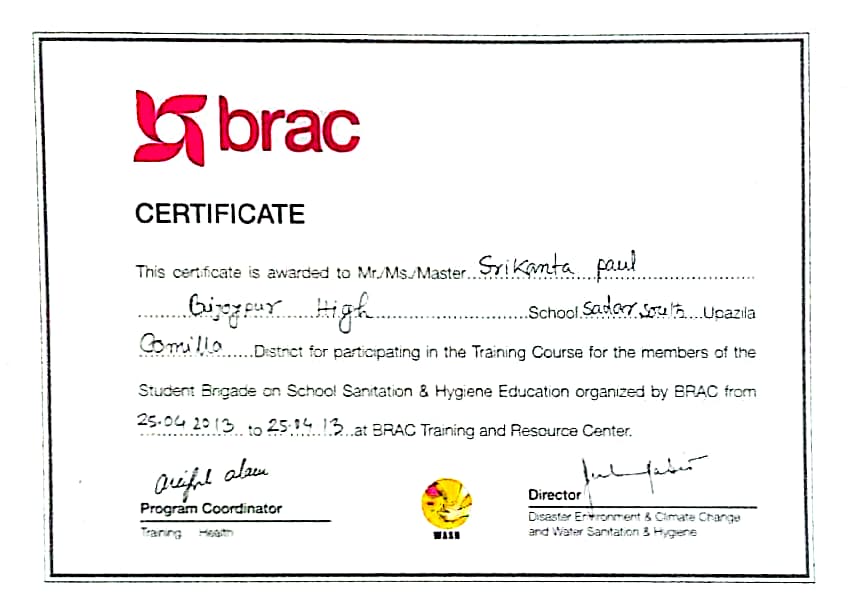 brac
CERTIFICATE
This certificate is awarded to Mr./Ms./Master Srikanta paul
Bijoypur High School Sadar south Upazila
Comilla District for participating in the Training Course for the members of the
Student Brigade on School Sanitation & Hygiene Education organized by BRAC from
25.04 2013 to 25.04.13 at BRAC Training and Resource Center.
Ariful alam
Program Coordinator
Training Health
WASH
Director
Disaster Environment & Climate Change
and Water Sanitation & Hygiene